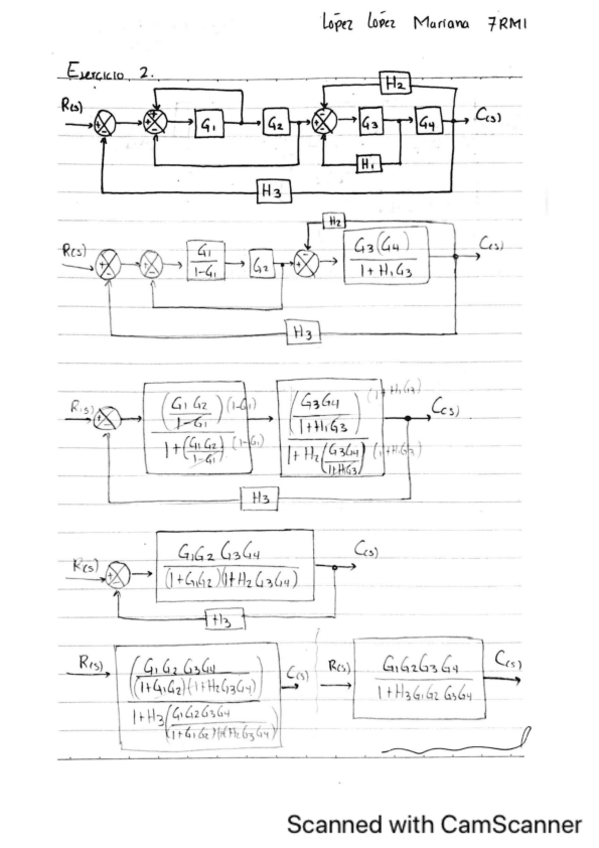 López López Mariana 7RM1
Ejercicio 2.
H2
R(s) + - + + - G1 G2 + - - G3 G4 C(s)
H1
H3
H2
R(s) + - + - G1/(1-G1) G2 + - - G3(G4)/(1+H1G3) C(s)
H3
R(s) + - (G1G2/(1-G1))(1-G1) / (1+(G1G2/(1-G1))(1-G1)) (G3G4/(1+H1G3))(1+H1G3) / (1+H2(G3G4/(1+H1G3))(1+H1G3)) C(s)
H3
R(s) + - G1G2G3G4/((1+G1G2)(1+H2G3G4)) C(s)
H3
R(s) (G1G2G3G4/((1+G1G2)(1+H2G3G4))) / (1+H3(G1G2G3G4/((1+G1G2)(1+H2G3G4)))) C(s) R(s) G1G2G3G4/(1+H3G1G2G3G4) C(s)
Scanned with CamScanner